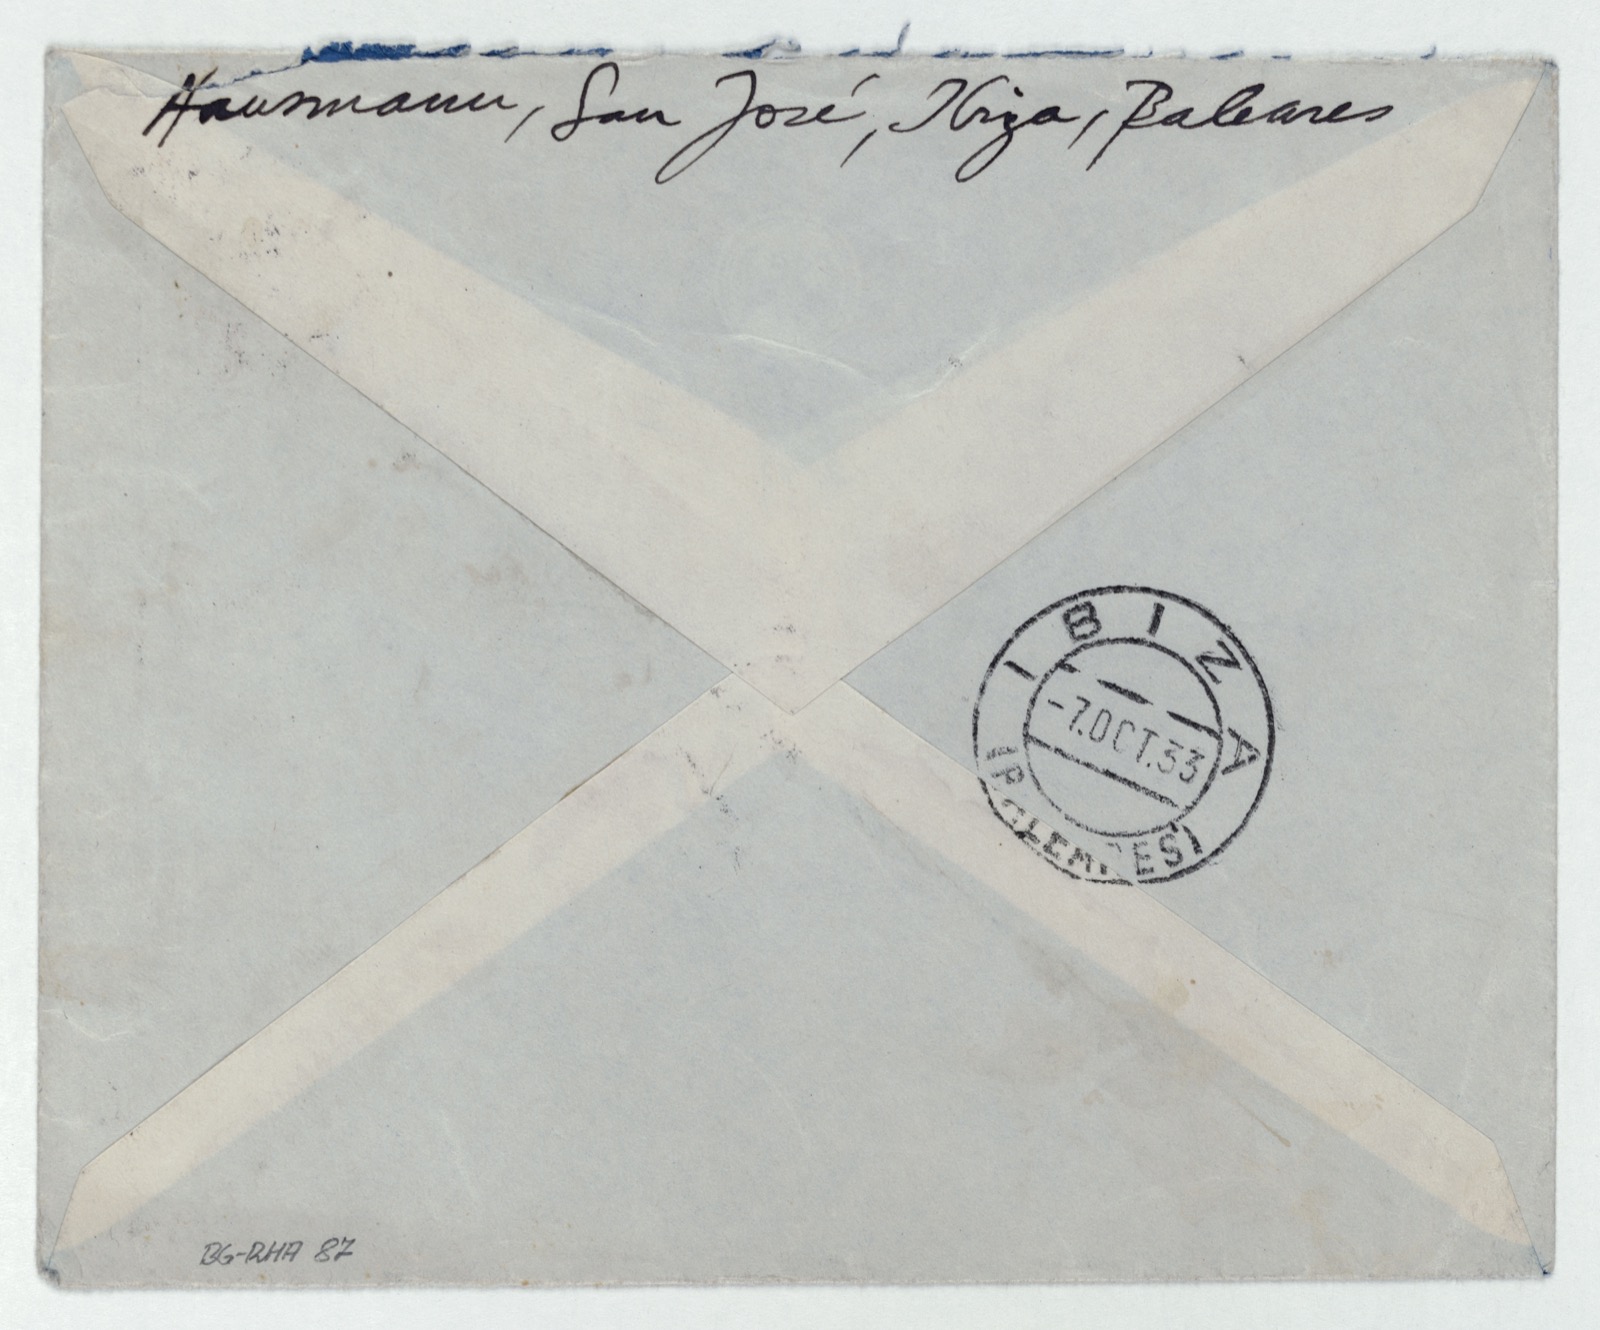 Hausmann, San José, Ibiza, Baleares
IBIZA
-7.OCT.33
(BALEARES)
BG-RHA 87